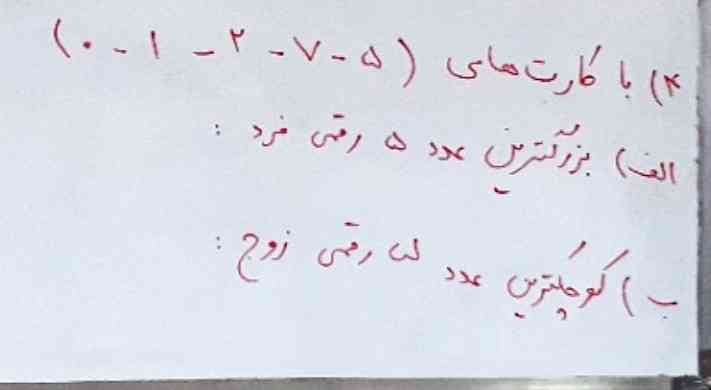 ۴) با کارت‌های (۵-۷-۲-۱-۰)
الف) بزرگترین عدد ۵ رقمی فرد :
ب) کوچکترین عدد ۵ رقمی زوج :